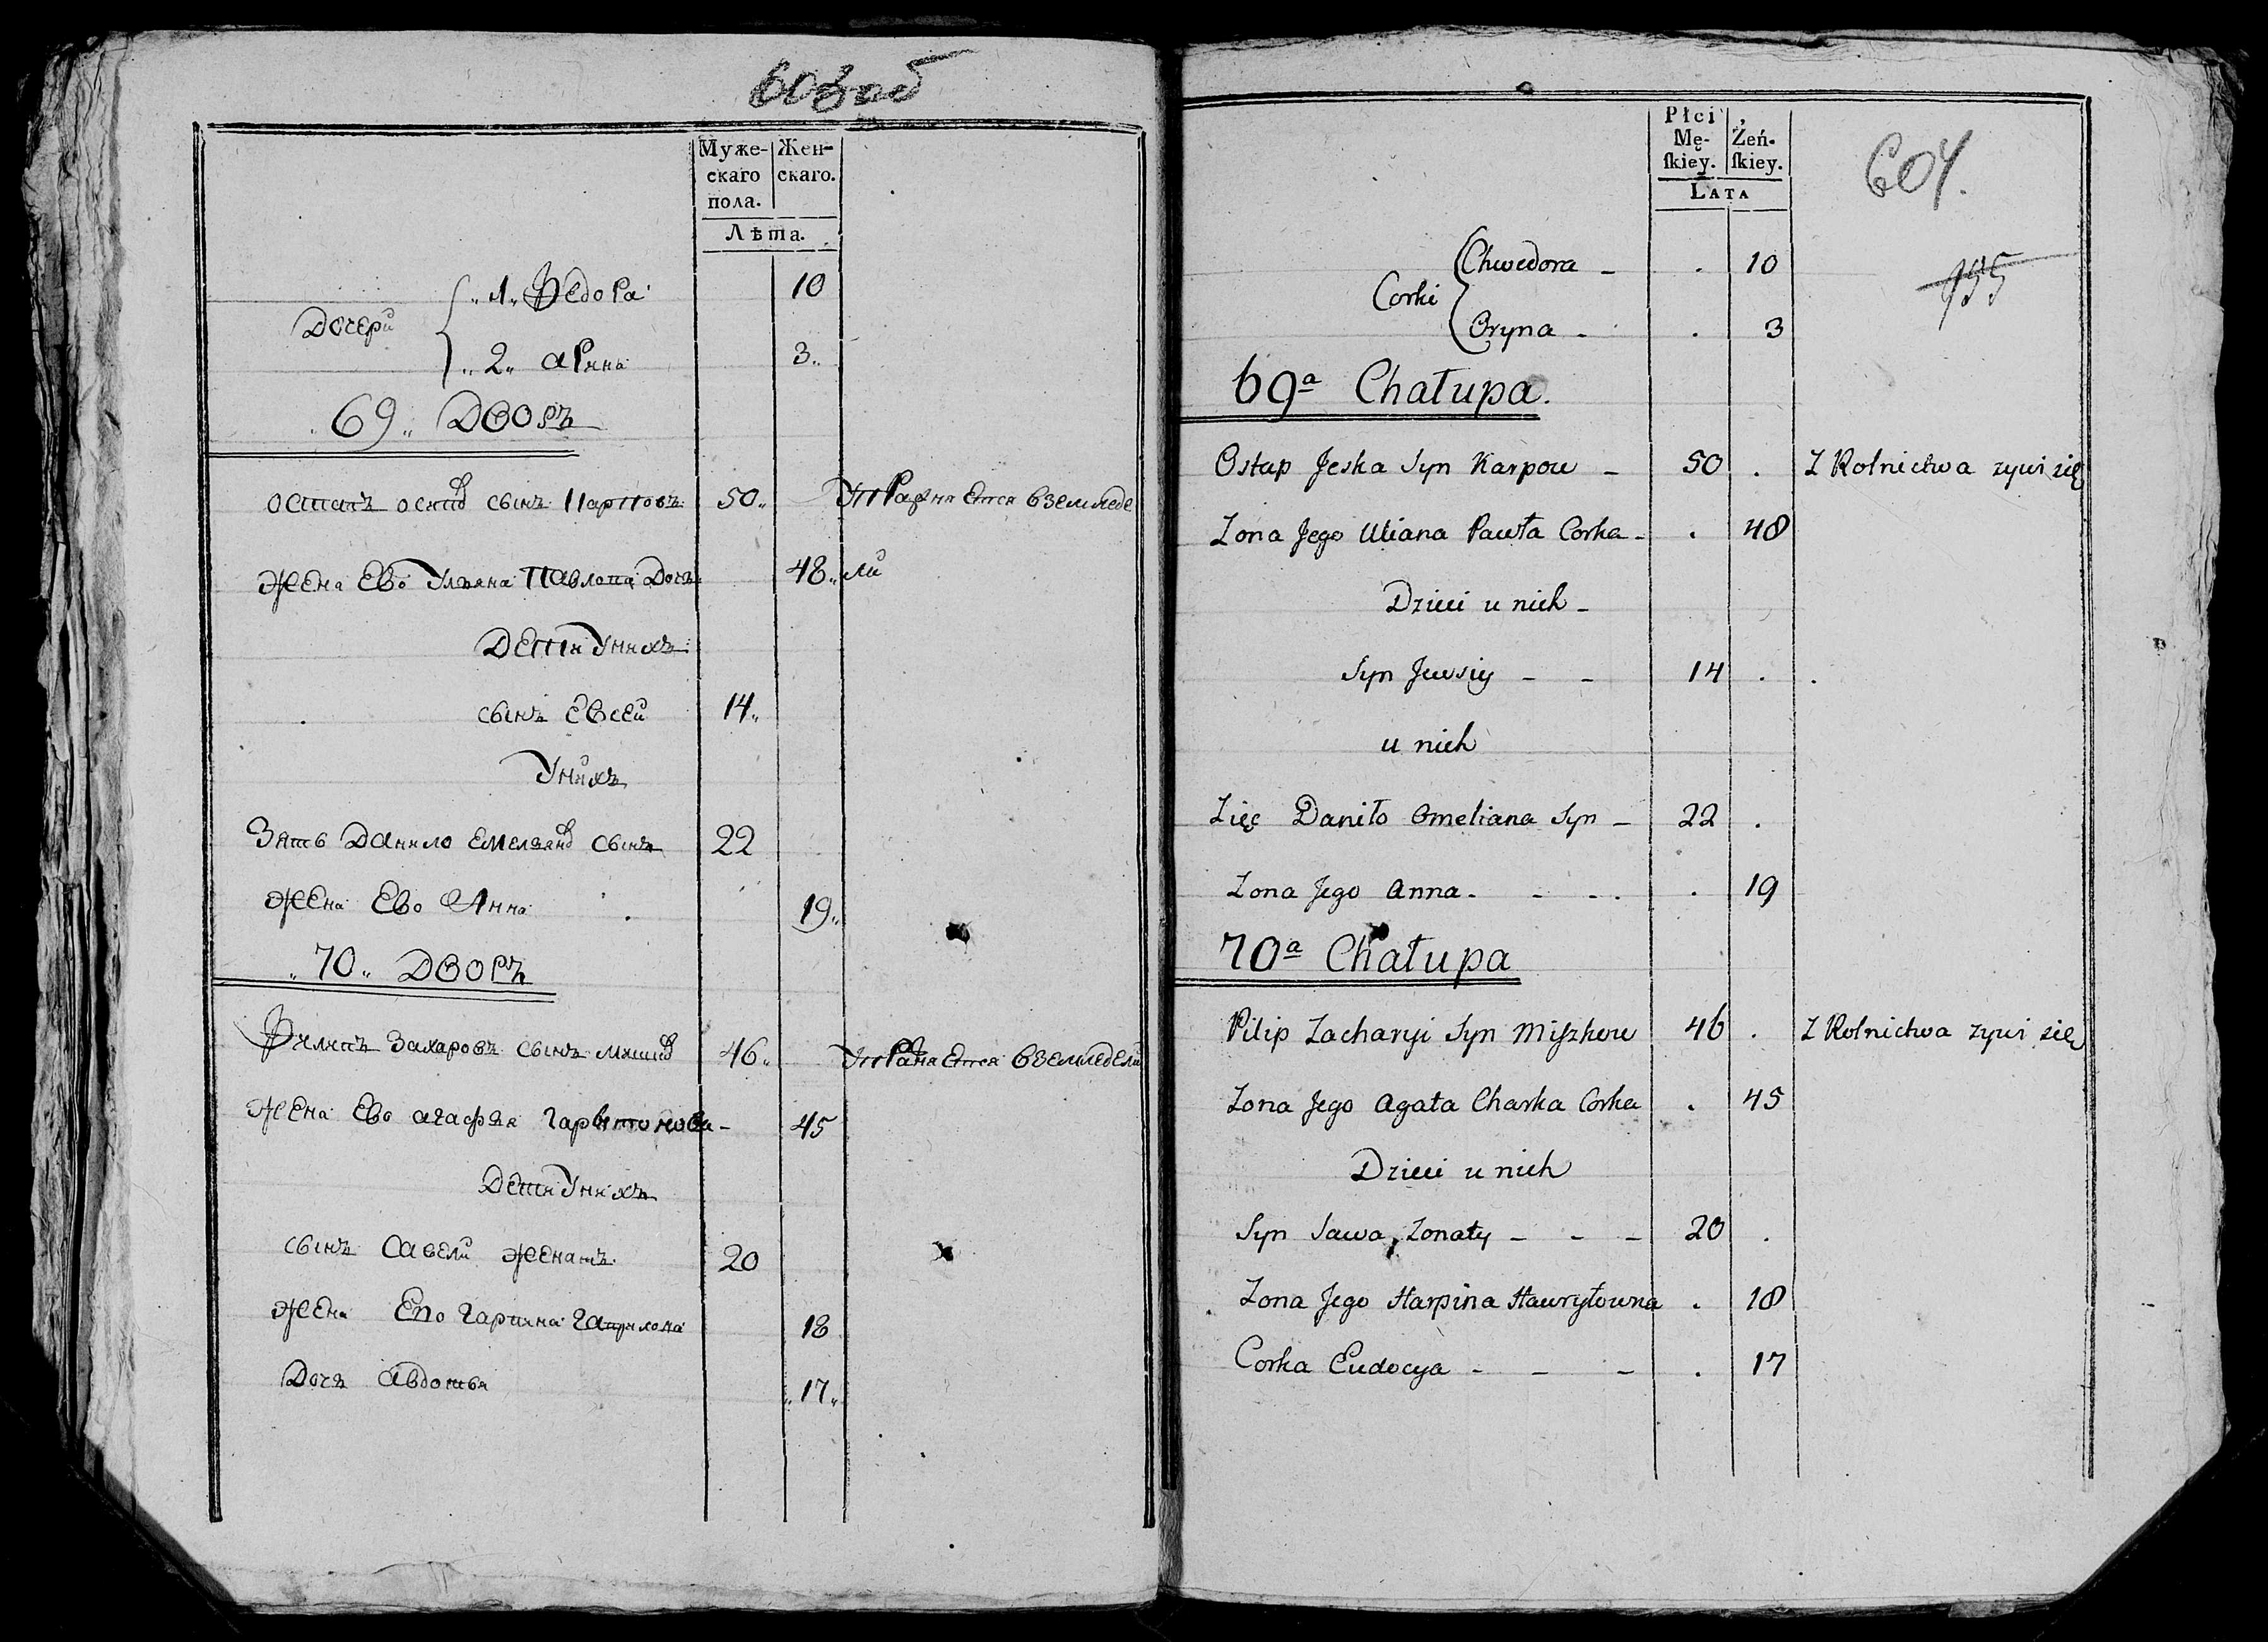 603 об
Муже-
скаго
пола.
Жен-
скаго.
Лѣта.
Дочери
„1„ Федора 10
„2„ Арина 3„
69„ Дворъ
Остапъ Осипов сынъ Карповъ 50„ Упражняется в земледе
Жена Ево Ульяна Павлова Дочь 48„ лии
Дети У них
сынъ Евсей 14„
У них
Зять Данило Емельянов сынъ 22
Жена Ево Анна 19„
„70„ Дворъ
Филипъ Захаровъ сынъ Мишков 46„ Упражняется в земледелии
Жена Ево Агафья Гаритонова 45
Дети У них
сынъ Савели женатъ 20
Жена Ево Гарпина Гаврилова 18
Дочь Авдотья „17„
Płci
Mę-
ſkiey.
Żeń-
ſkiey.
Lata
604.
155
Corki
Chwedora - . 10
Oryna - . 3
69ª Chałupa.
Ostap Jeska Syn Karpow - 50 . Z Rolnictwa zywi się
Zona Jego Uliana Pawła Corka - . 48
Dzieci u nich -
Syn Jewsiy - - 14 . .
u nich
Zięc Daniło Omeliana Syn - 22 .
Zona Jego Anna - - - . . 19
70ª Chałupa
Pilip Zacharyi Syn Miszkow 46 . Z Rolnictwa zywi się
Zona Jego Agata Charka Corka . 45
Dzieci u nich
Syn Sawa, Zonaty - - - 20 .
Zona Jego Harpina Hawryłowna . 18
Corka Eudocya - - - . 17